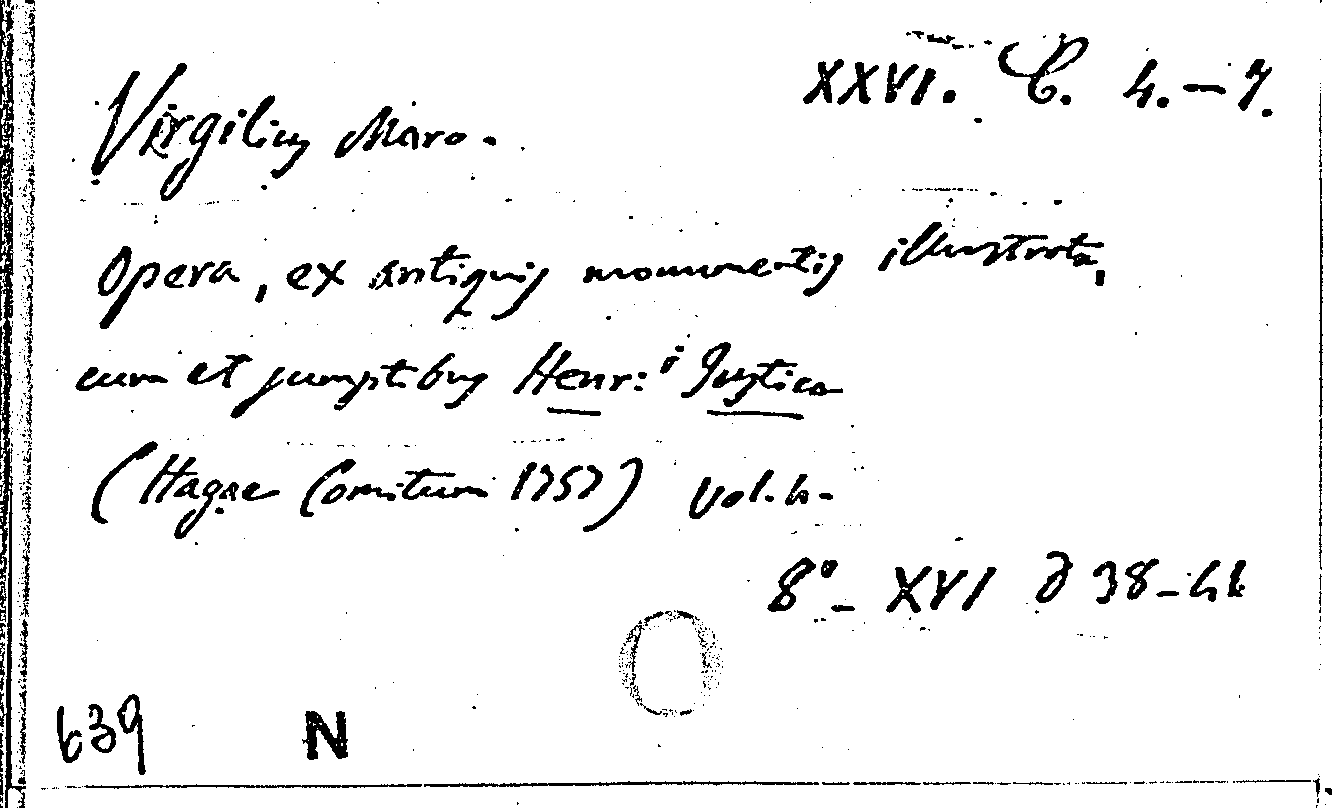 XXVI. C. 4.-7.
Virgilius Maro.
Opera, ex antiquis monumentis illustrata,
cum et sumptibus Henr:i Justice
(Hagae Comitum 1757) Vol. 4.
8° - XVI 38-41
639 N